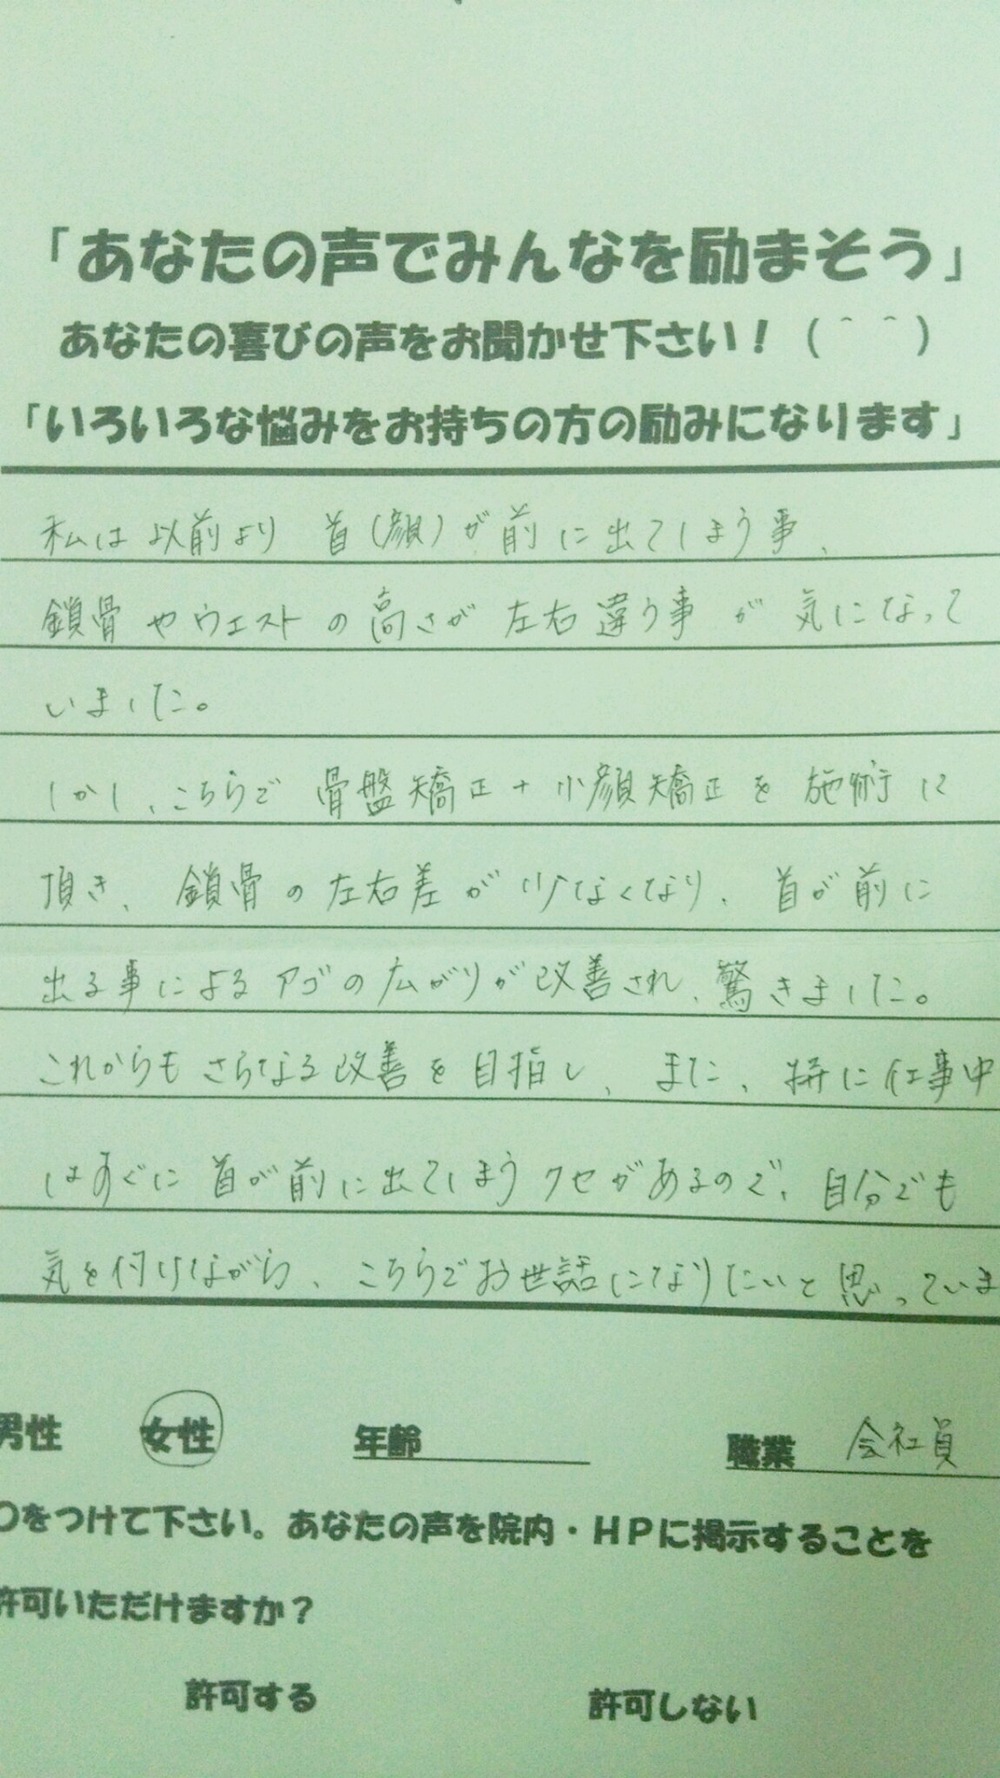 「あなたの声でみんなを励まそう」
あなたの喜びの声をお聞かせ下さい！（＾＾）
「いろいろな悩みをお持ちの方の励みになります」
私は以前より 首(顔)が前に出てしまう事、
鎖骨やウエストの高さが左右違う事が気になって
いました。
しかし、こちらで骨盤矯正+小顔矯正を施術に
頂き、鎖骨の左右差が少なくなり、首が前に
出る事によるアゴの広がりが改善され、驚きました。
これからもさらなる改善を目指し、また、特に仕事中
はすぐに首が前に出てしまうクセがあるので、自分でも
気を付けながら、こちらでお世話になりたいと思っていま
男性 女性 年齢 職業 会社員
○をつけて下さい。あなたの声を院内・ＨＰに掲示することを
許可いただけますか？
許可する 許可しない